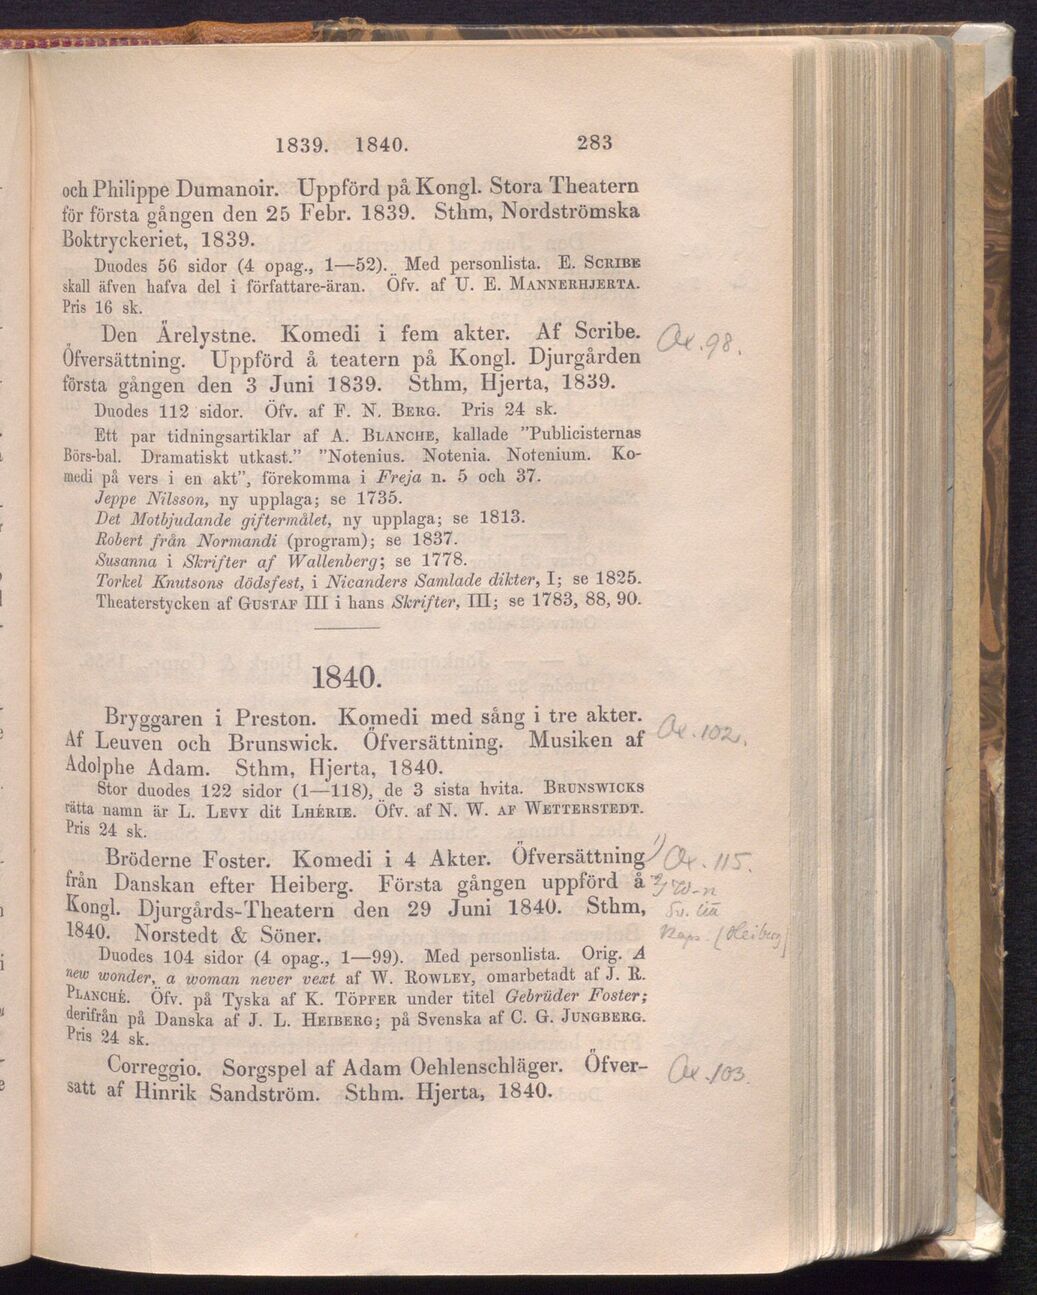 1839. 1840. 283
och Philippe Dumanoir. Uppförd på Kongl. Stora Theatern
för första gången den 25 Febr. 1839. Sthm, Nordströmska
Boktryckeriet, 1839.
Duodes 56 sidor (4 opag., 1—52). Med personlista. E. SCRIBE
skall äfven hafva del i författare-äran. Öfv. af U. E. MANNERHJERTA.
Pris 16 sk.
Den Ärelystne. Komedi i fem akter. Af Scribe.
Ox. 98.
Öfversättning. Uppförd å teatern på Kongl. Djurgården
första gången den 3 Juni 1839. Sthm, Hjerta, 1839.
Duodes 112 sidor. Öfv. af F. N. BERG. Pris 24 sk.
Ett par tidningsartiklar af A. BLANCHE, kallade "Publicisternas
Börs-bal. Dramatiskt utkast." "Notenius. Notenia. Notenium. Ko-
medi på vers i en akt", förekomma i Freja n. 5 och 37.
Jeppe Nilsson, ny upplaga; se 1735.
Det Motbjudande giftermålet, ny upplaga; se 1813.
Robert från Normandi (program); se 1837.
Susanna i Skrifter af Wallenberg; se 1778.
Torkel Knutsons dödsfest, i Nicanders Samlade dikter, I; se 1825.
Theaterstycken af GUSTAF III i hans Skrifter, III; se 1783, 88, 90.
1840.
Bryggaren i Preston. Komedi med sång i tre akter.
Af Leuven och Brunswick. Öfversättning. Musiken af
Ox. 102.
Adolphe Adam. Sthm, Hjerta, 1840.
Stor duodes 122 sidor (1—118), de 3 sista hvita. BRUNSWICKS
rätta namn är L. LEVY dit LHÉRIE. Öfv. af N. W. AF WETTERSTEDT.
Pris 24 sk.
Bröderne Foster. Komedi i 4 Akter. Öfversättning
1) Ox. 115.
från Danskan efter Heiberg. Första gången uppförd å
Kongl. Djurgårds-Theatern den 29 Juni 1840. Sthm,
1840. Norstedt & Söner.
Duodes 104 sidor (4 opag., 1—99). Med personlista. Orig. A
new wonder, a woman never vext af W. ROWLEY, omarbetadt af J. R.
PLANCHÉ. Öfv. på Tyska af K. TÖPFER under titel Gebrüder Foster;
derifrån på Danska af J. L. HEIBERG; på Svenska af C. G. JUNGBERG.
Pris 24 sk.
Correggio. Sorgspel af Adam Oehlenschläger. Öfver-
Ox. 103.
satt af Hinrik Sandström. Sthm. Hjerta, 1840.